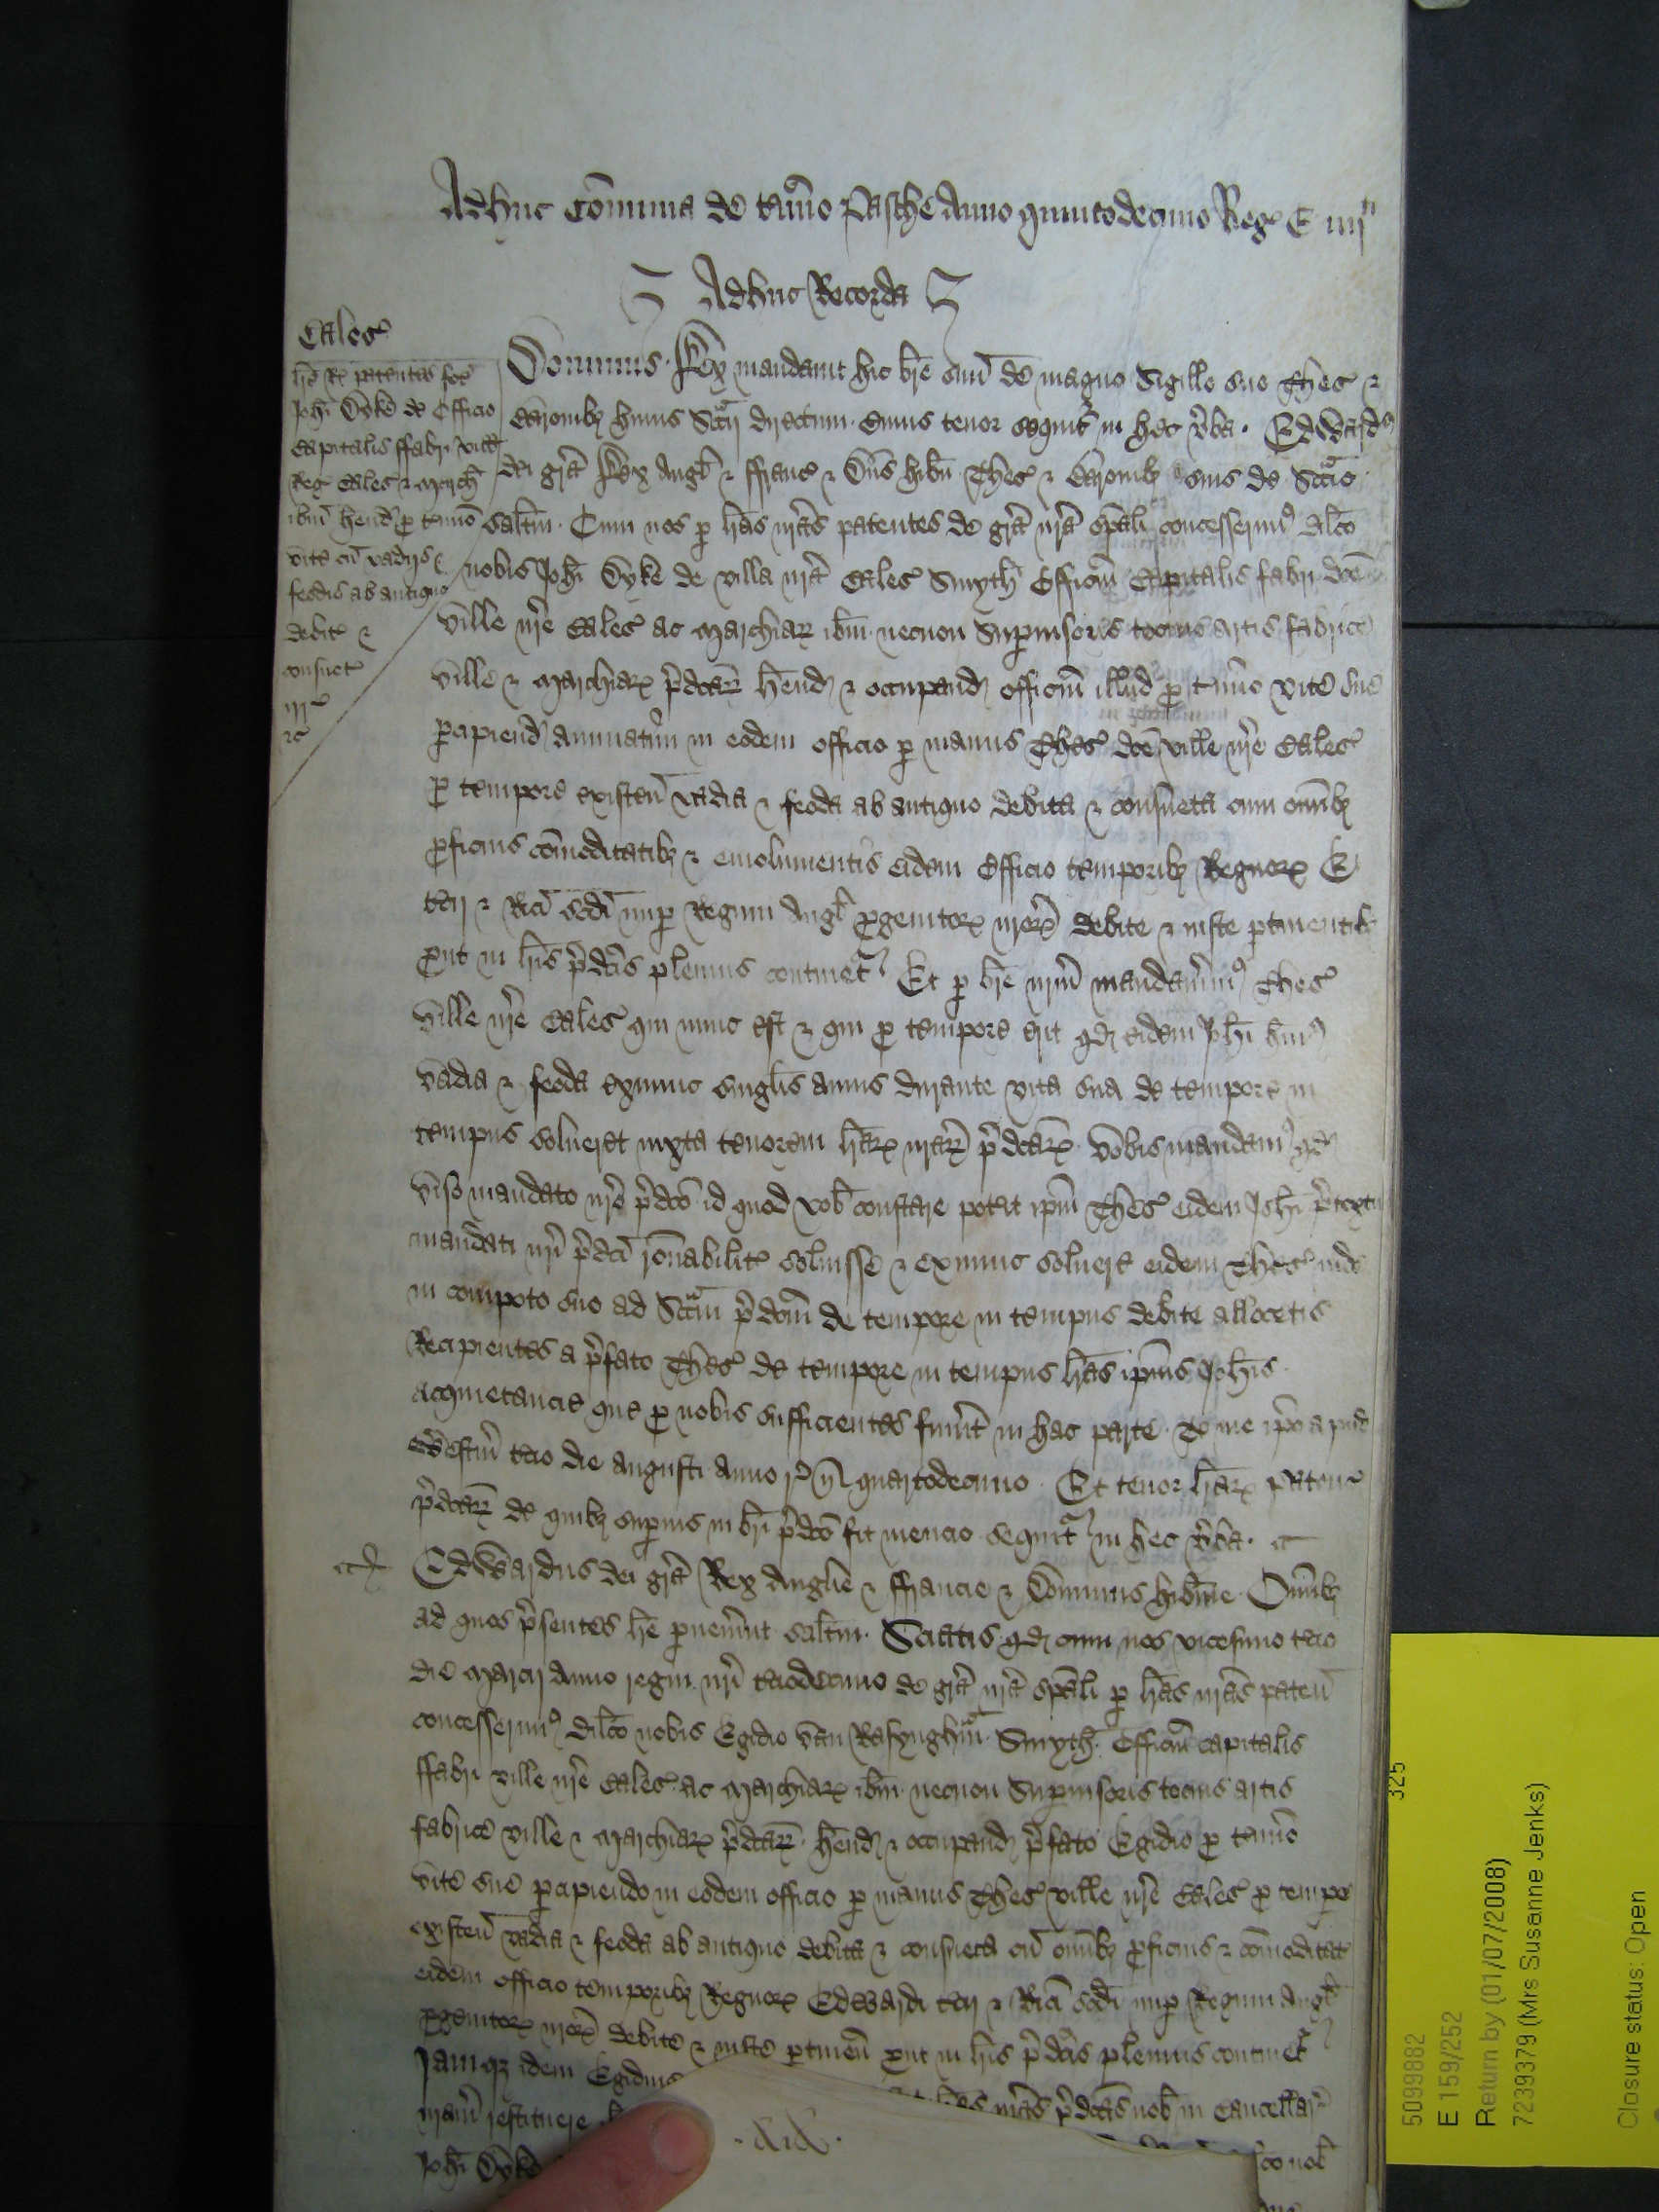 Adhuc Cōmunia de tīmo Pasche Anno quintodecimo Regꝭ E iiijti
Adhuc Recorda
Calesꝭ
lr̄e Rꝭ patentes fcē
Joh̄i Dyke de Officio
Capitalis ffabri vill̄
Regꝭ Calesꝭ ⁊ march̄
ibm̄ hend̄ ꝑ t̄mio
vite cū vadijs ⁊
feodis ab antiquo
debitꝭ ⁊
consuetꝭ
Dominus Rex mandauit hic br̄e suū de magno Sigillo suo Thesꝭ ⁊
Baronibꝫ huius Scc̄ij directum cuius tenor sequitr̄ in hec v̄ba. Edwardꝰ
dei gr̄a Rex Angl̄ ⁊ ffrancꝭ ⁊ Dn̄s hibn̄ Thesꝭ ⁊ Baronibꝫ suis de Scc̄io
salt̄m. Cum nos ꝑ lr̄as nr̄as patentes de gr̄a nr̄a sp̄ali concesserimꝰ dilc̄o
nobis Joh̄i Dyke de villa nr̄a Calesꝭ Smyth Officiū Capitalis fabri dc̄e
ville nr̄e Calesꝭ ac Marchiarꝝ ibm̄ necnon Suꝑuisoris tocius artis fabrice
ville ⁊ Marchiarꝝ p̄dcarꝝ hend̄ ⁊ occupand̄ officiū illud ꝑ t̄mino vite sue
ꝑcipiend̄ annuatim̄ in eodem officio ꝑ manus Thesꝭ dc̄e ville nr̄e Calesꝭ
ꝓ tempore existen̄ vadia ⁊ feoda ab antiquo debita ⁊ consueta cum om̄ibꝫ
ꝓficuis cōmoditatibꝫ ⁊ emolumentis eidem Officio temporibꝫ Regnorꝝ E
tcij ⁊ Ric̄i scd̄i nuꝑ Regum Angl̄ ꝓgenitorꝝ nr̄orꝝ debite ⁊ iuste ꝑtinentibꝫ
ꝓut in lr̄is p̄dcīs plenius continetr̄ Et ꝑ br̄e nr̄m̄ mandauimꝰ Thesꝭ
ville nr̄e Calesꝭ qui nunc est ⁊ qui ꝓ tempore erit qd̄ eidem Joh̄i hmōi
vadia ⁊ feoda exnunc singl̄is annis durante vita sua de tempore in
tempus solueret iuxta tenorem lr̄arꝝ nr̄arꝝ p̄dcarꝝ vobis mandamꝰ qd̄
viso mandato nr̄o p̄dc̄o id quod vob̄ constare poterit ip̄m Thesꝭ eidem Joh̄i p̄textu
mandati nr̄i p̄dc̄i rōnabilitꝭ soluisse ⁊ exnunc soluere eidem Thesꝭ inde
in compoto suo ad Scc̄m p̄dcm̄ de tempore in tempus debite allocetis
Recipientes a p̄fato Thesꝭ de tempore in tempus lr̄as ip̄ius Joh̄is
acquietancie que ꝓ nobis sufficientes fuerint in hac parte. T. me ip̄o apud
Westm̄ tcio die augusti anno rꝭ nr̄i quartodecimo. Et tenor lr̄arꝝ patenꝭ
p̄dcarꝝ de quibꝫ suꝑius in br̄i p̄dc̄o fit mencio sequitr̄ in hec v̄ba.
Edwardus dei gr̄a Rex Anglie ⁊ ffrancie ⁊ Dominus hibn̄ie. Om̄ibꝫ
ad quos p̄sentes lr̄e ꝑuenerint salt̄m. Sciatis qd̄ cum nos vicesimo tcio
die Marcij Anno regni nr̄i tciodecimo de gr̄a nr̄a sp̄ali ꝑ lr̄as nr̄as paten̄
concesserimꝰ dilc̄o nobis Egidio van Rasynghm̄ Smyth Officiū capitalis
ffabri ville nr̄e Calesꝭ ac Marchiarꝝ ibm̄ necnon Suꝑuisoris tocius artis
fabrice ville ⁊ Marchiarꝝ p̄dcarꝝ hend̄ ⁊ occupand̄ p̄fato Egidio ꝓ t̄mio
vite sue ꝑcipiendo in eodem officio ꝑ manus Thesꝭ ville nr̄e Calesꝭ ꝓ tempore
existen̄ vadia ⁊ feoda ab antiquo debita ⁊ consueta cū om̄ibꝫ ꝓficuis ⁊ cōmoditat̄
eidem officio temporibꝫ Regnorꝝ Edwardi tcij ⁊ Ric̄i scd̄i nuꝑ Regum Angl̄
ꝓgenitorꝝ nr̄orꝝ debite ⁊ iuste ꝑtinen̄ ꝓut in lr̄is p̄dcīs plenius continetr̄
Jamqꝫ idem Egidius lr̄as nr̄as p̄dcas nob̄ in Cancellarꝭ
nr̄am restituere
Joh̄i Dyke nob̄
.xix.
325
5099882
E 159/252
Return by (01/07/2008)
7239379 (Mrs Susanne Jenks)
Closure status: Open